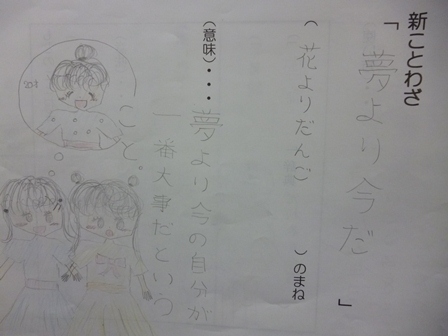 新ことわざ
「夢より今だ」
(花よりだんご)のまね
(意味)・・・夢より今の自分が
一番大事だという
こと。